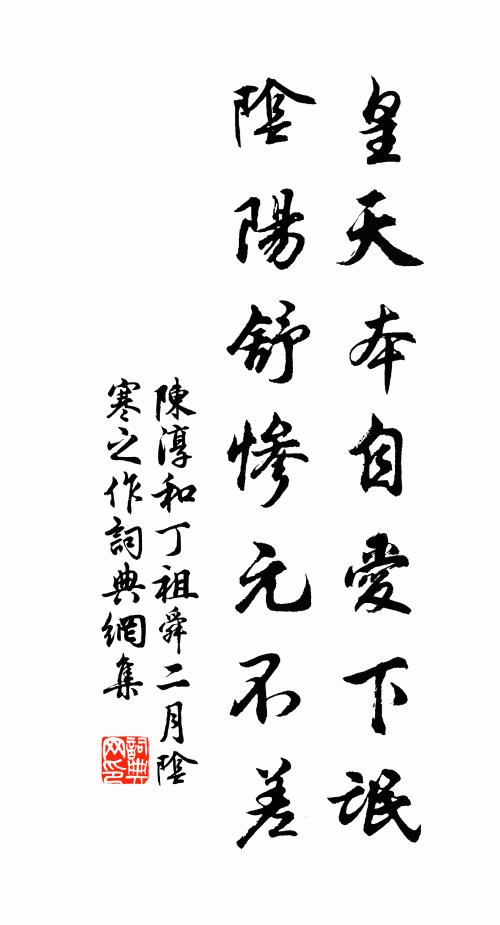 皇天本自愛下氓
陰陽舒慘元不差
陳淳和丁祖舜二月陰
寒之作詞典網集
詞典
网印